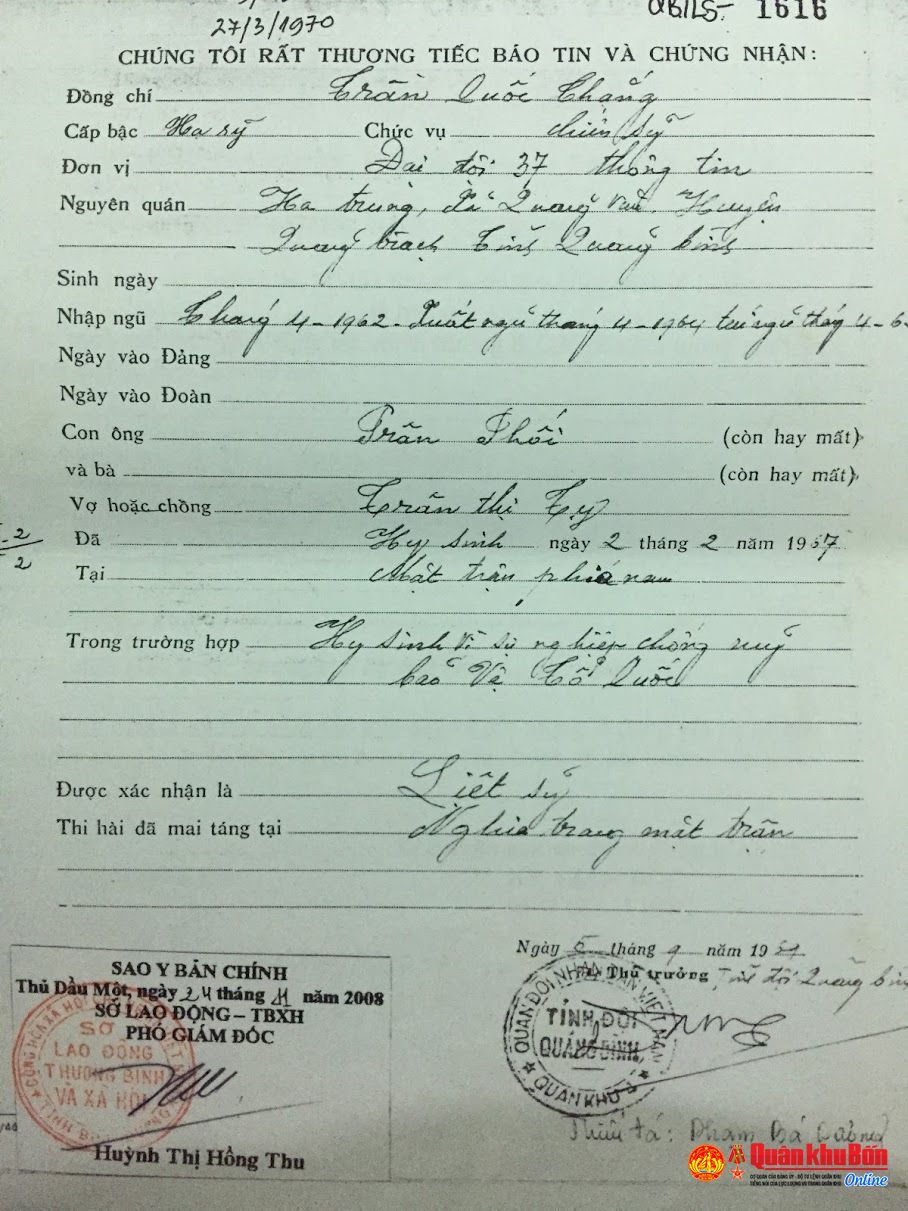 27/3/1970
QB/LS- 1616
CHÚNG TÔI RẤT THƯƠNG TIẾC BÁO TIN VÀ CHỨNG NHẬN:
Đồng chí Trần Quốc Chặng
Cấp bậc Hạ sỹ Chức vụ chiến sỹ
Đơn vị Đại đội 37 thông tin
Nguyên quán Hạ trung, Xã Quảng Văn. Huyện
Quảng trạch Tỉnh Quảng bình
Sinh ngày
Nhập ngũ Tháng 4-1962. Xuất ngũ tháng 4-1964 tái ngũ tháng 4-6
Ngày vào Đảng
Ngày vào Đoàn
Con ông Trần Phối (còn hay mất)
và bà (còn hay mất)
Vợ hoặc chồng Trần thị Ty
Đã Hy sinh ngày 2 tháng 2 năm 1967
Tại Mặt trận phía nam
Trong trường hợp Hy sinh vì sự nghiệp chống mỹ
bảo Vệ Tổ Quốc
Được xác nhận là Liệt sỹ
Thi hài đã mai táng tại Nghĩa trang mặt trận
Ngày 5 tháng 9 năm 19
Thủ trưởng Tỉnh đội Quảng bình
QUÂN ĐỘI NHÂN DÂN VIỆT NAM
TỈNH ĐỘI
QUẢNG BÌNH
QUÂN KHU
Thiếu tá: Phạm Bá
SAO Y BẢN CHÍNH
Thủ Dầu Một, ngày 24 tháng 11 năm 2008
SỞ LAO ĐỘNG – TBXH
PHÓ GIÁM ĐỐC
SỞ
LAO ĐỘNG
THƯƠNG BINH
VÀ XÃ HỘI
Huỳnh Thị Hồng Thu
Quân khu Bốn
CƠ QUAN CỦA ĐẢNG ỦY - BỘ TƯ LỆNH QUÂN KHU
TIẾNG NÓI CỦA LỰC LƯỢNG VŨ TRANG QUÂN KHU
Online